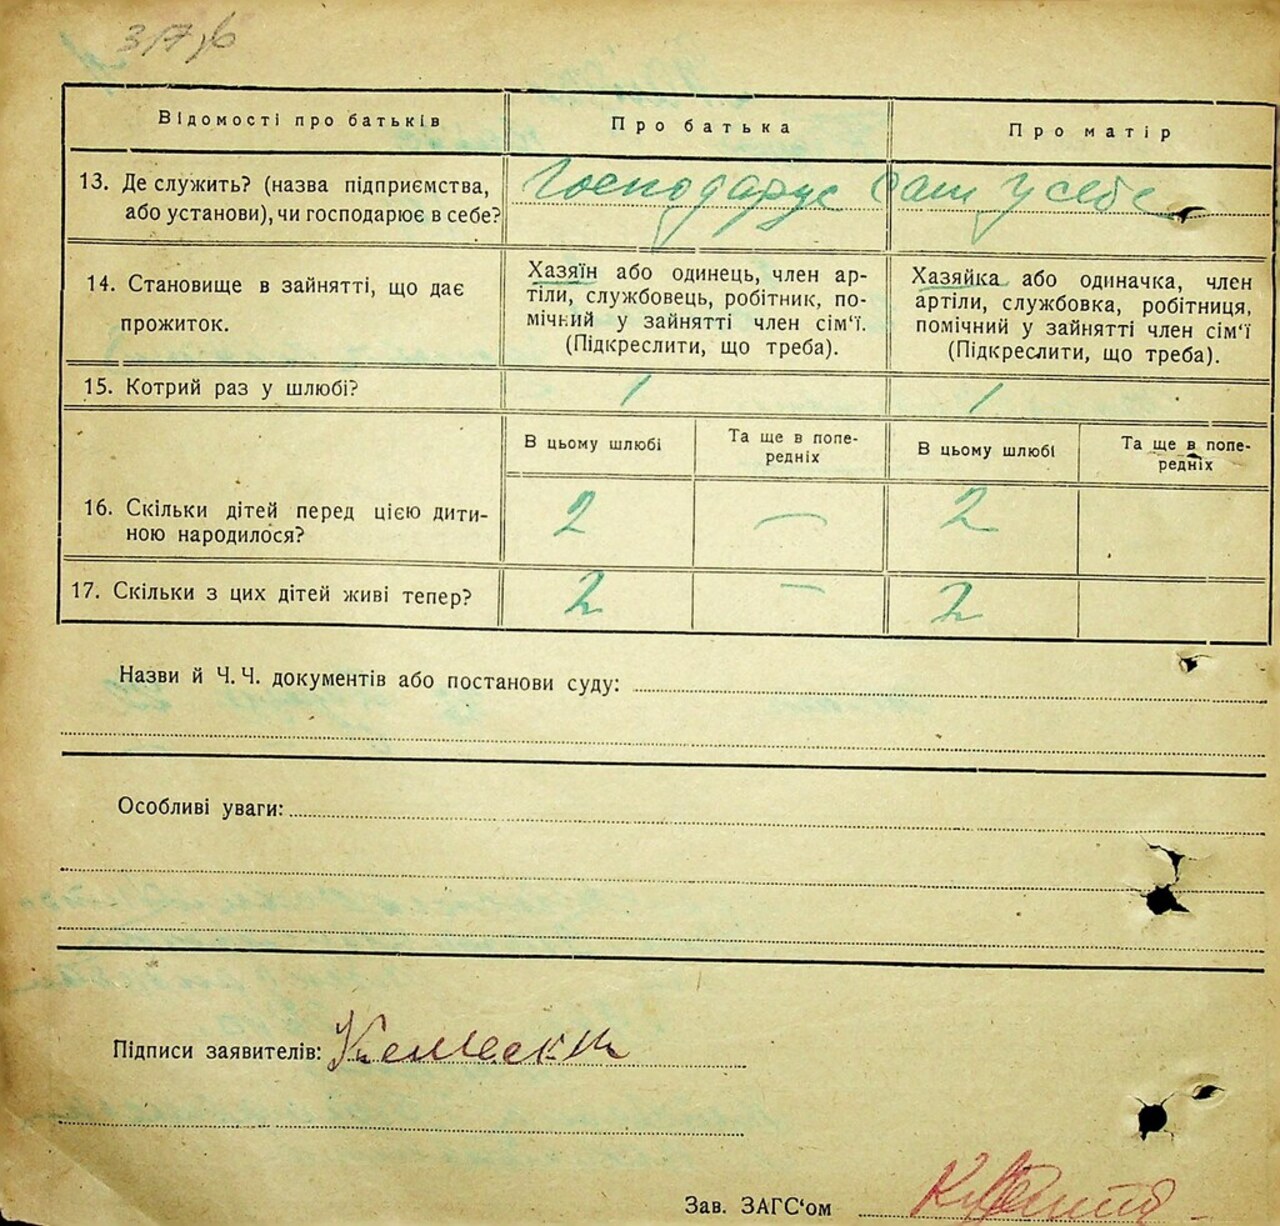 37/6
Відомості про батьків Про батька Про матір
13. Де служить? (назва підприємства, або установи), чи господарює в себе? Господарує сам у себе
14. Становище в зайнятті, що дає прожиток.
Хазяїн або одинець, член ар-
тілі, службовець, робітник, по-
мічний у зайнятті член сім‘ї.
(Підкреслити, що треба).
Хазяйка або одиначка, член
артіли, службовка, робітниця,
помічний у зайнятті член сім‘ї
(Підкреслити, що треба).
15. Котрий раз у шлюбі? 1 1
В цьому шлюбі Та ще в попе-
редніх В цьому шлюбі Та ще в попе-
редніх
16. Скільки дітей перед цією дити-
ною народилося? 2 — 2
17. Скільки з цих дітей живі тепер? 2 — 2
Назви й Ч. Ч. документів або постанови суду:
Особливі уваги:
Підписи заявителів:
Зав. ЗАГС‘ом